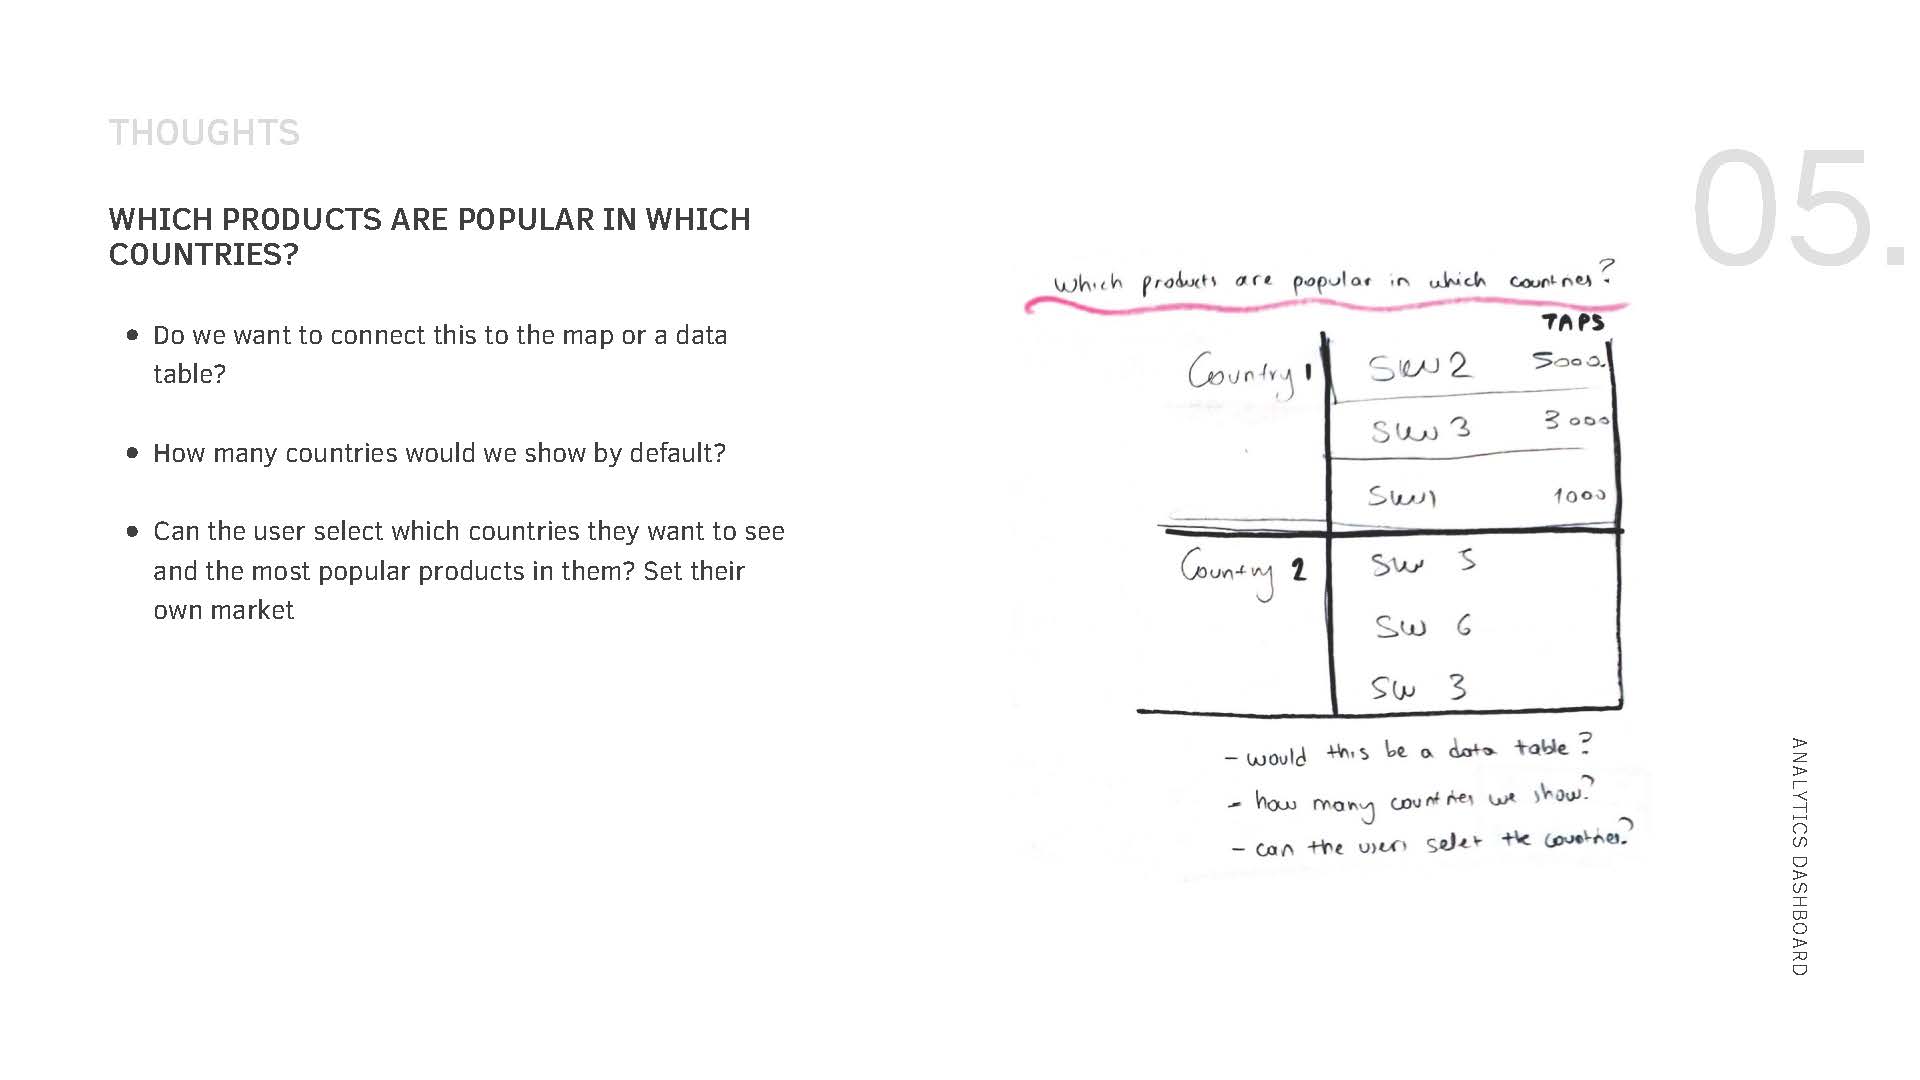 THOUGHTS
05.
WHICH PRODUCTS ARE POPULAR IN WHICH
COUNTRIES?
Do we want to connect this to the map or a data
table?
How many countries would we show by default?
Can the user select which countries they want to see
and the most popular products in them? Set their
own market
Which products are popular in which countries?
TAPS
Country 1
SKU 2 5000
SKU 3 3000
SKU 1 1000
Country 2
5
6
3
- would this be a data table?
- how many countries we show?
- can the users select the countries?
ANALYTICS DASHBOARD